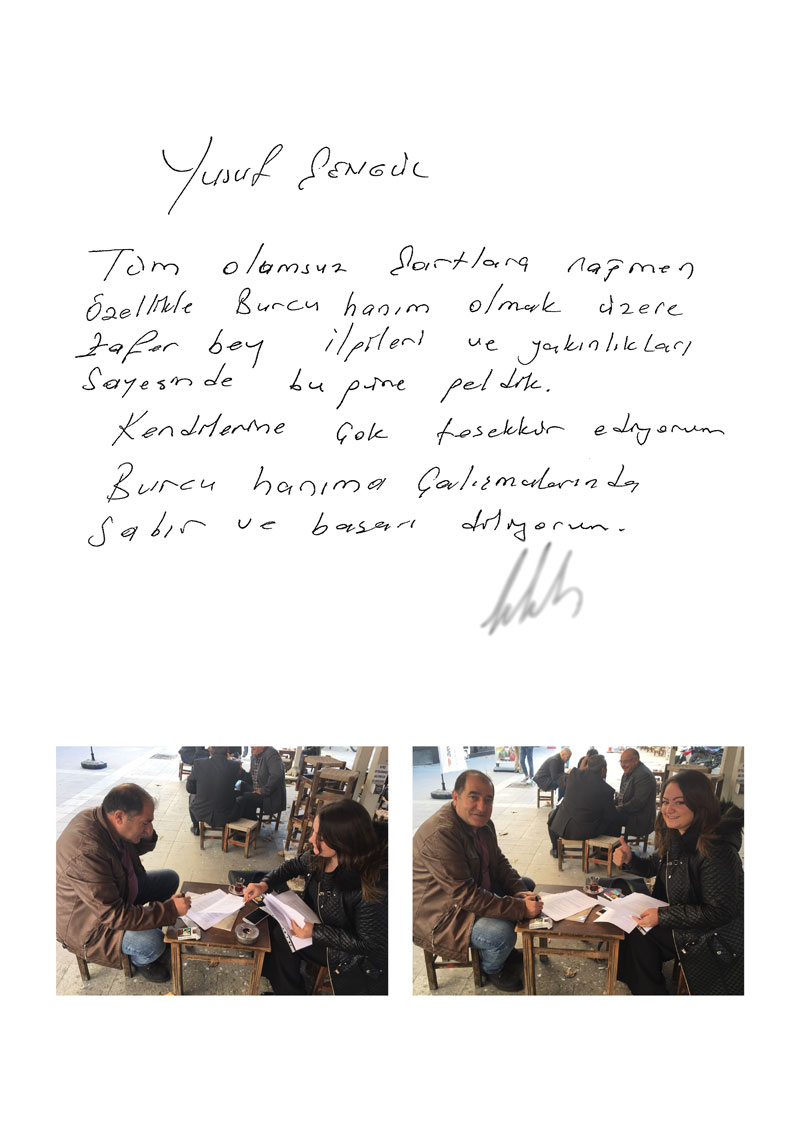 Yusuf ŞENGÜL
Tüm olamsuz şartlara rağmen
özellikle Burcu hanım olmak üzere
Zafer bey ilgileri ve yakınlıkları
sayesinde bu güne geldik.
Kendilerine çok teşekkür ediyorum
Burcu hanıma çalışmalarında
sabır ve başarı diliyorum.